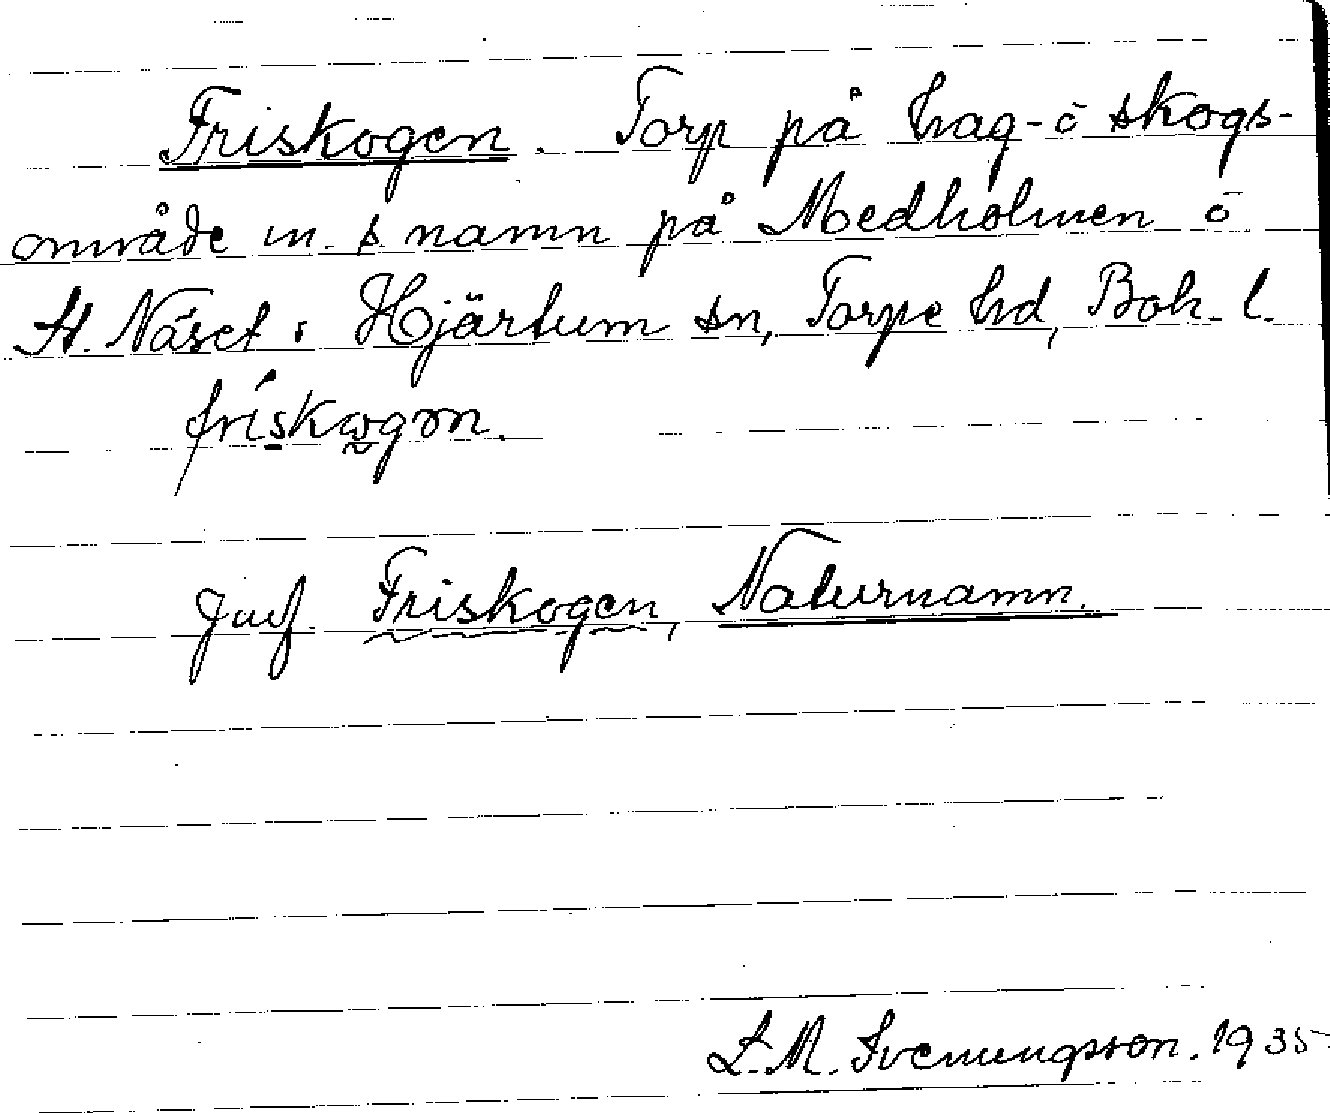 Friskogen. Torp på hag- ō skogs-
område m. s namn på Medholmen ō
St. Näset i Hjärtum sn, Torpe hd, Boh. l.
friskωgən.
Jmf. Friskogen, Naturnamn.
L.M. Svenungsson. 1935